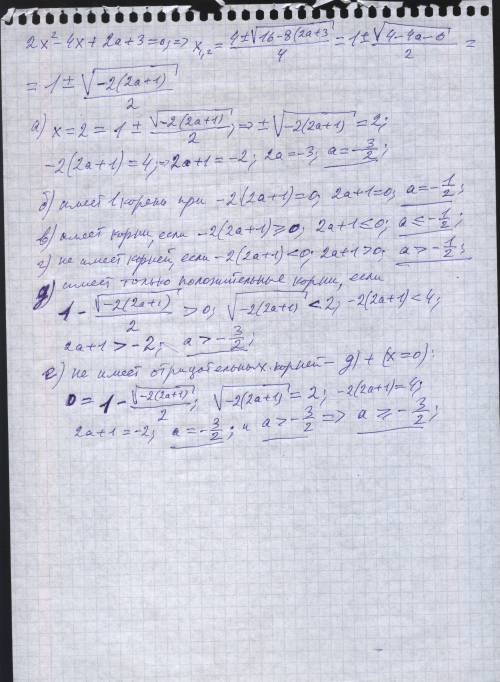 2x² - 4x + 2a + 3 = 0; => x₁,₂ = (4 ± √(16 - 8(2a+3)))/4 = 1 ± √(4 - 4a - 6)/2 =
= 1 ± √(-2(2a+1))/2
а) x = 2 = 1 ± √(-2(2a+1))/2; => ± √(-2(2a+1)) = 2;
-2(2a+1) = 4; => 2a+1 = -2; 2a = -3; a = -3/2;
б) имеет 1 корень при -2(2a+1) = 0; 2a+1 = 0; a = -1/2;
в) имеет корни, если -2(2a+1) ≥ 0; 2a+1 ≤ 0; a ≤ -1/2;
г) не имеет корней, если -2(2a+1) < 0; 2a+1 > 0; a > -1/2;
д) имеет только положительные корни, если
1 - √(-2(2a+1))/2 > 0; √(-2(2a+1)) < 2; -2(2a+1) < 4;
2a+1 > -2; a > -3/2;
е) не имеет отрицательных корней - д) + (x = 0):
0 = 1 - √(-2(2a+1))/2; √(-2(2a+1)) = 2; -2(2a+1) = 4;
2a+1 = -2; a = -3/2; и a > -3/2 => a ≥ -3/2;